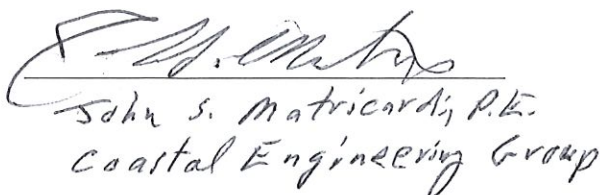 John S. Matricardi, P.E.
Coastal Engineering Group